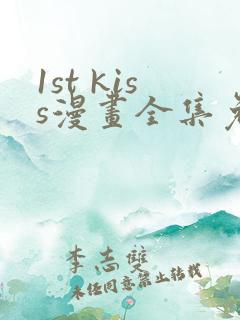 1st kis
s漫畫全集免
李志雙
未任同意禁止轉載